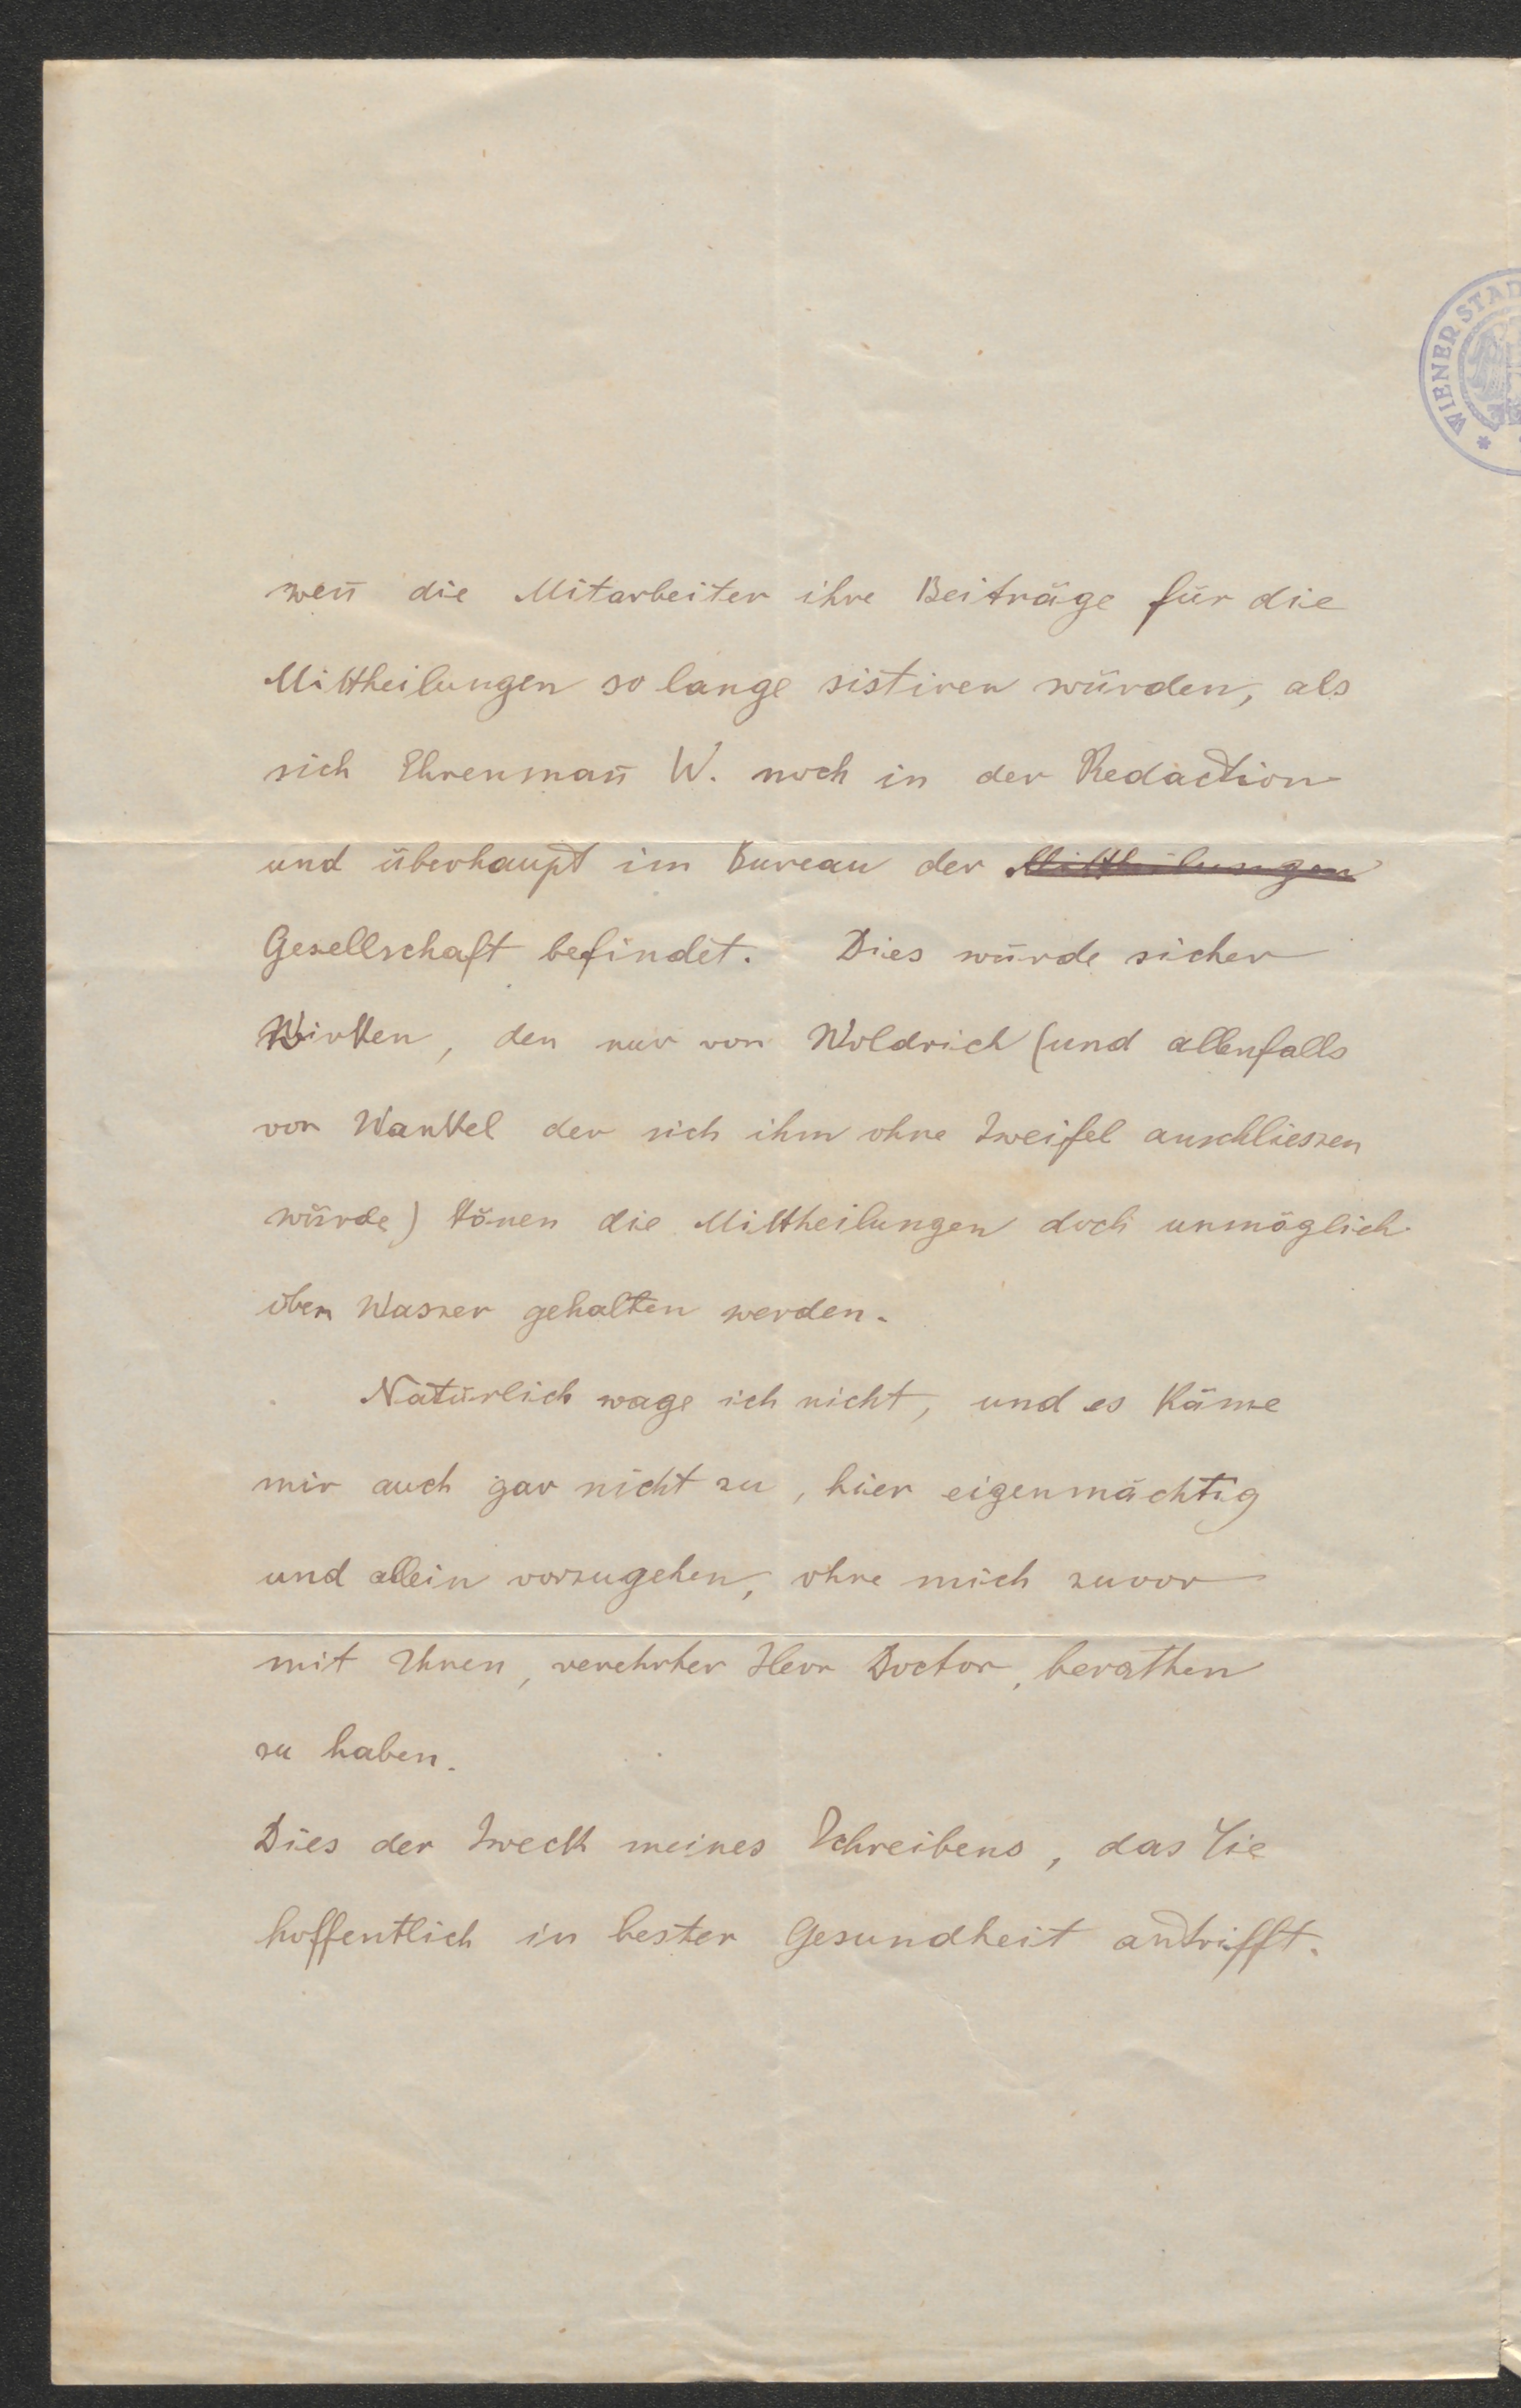 weñ die Mitarbeiter ihre Beiträge für die
Mittheilungen so lange sistiren würden, als
sich Ehrenmañ W. noch in der Redaction
und überhaupt im Bureau der Mittheilungen
Gesellschaft befindet. Dies würde sicher
Wirken, den nur von Woldrich (und allenfalls
von Wankel der sich ihm ohne Zweifel anschliessen
würde) könen die Mittheilungen doch unmöglich
ober Wasser gehalten werden.
Natürlich wage ich nicht, und es käme
mir auch gar nicht zu, hier eigenmächtig
und allein vorzugehen, ohne mich zuvor
mit Ihnen, verehrter Herr Doctor, berathen
zu haben.
Dies der Zweck meines Schreibens, das Sie
hoffentlich in bester Gesundheit antrifft.
WIENER STAD